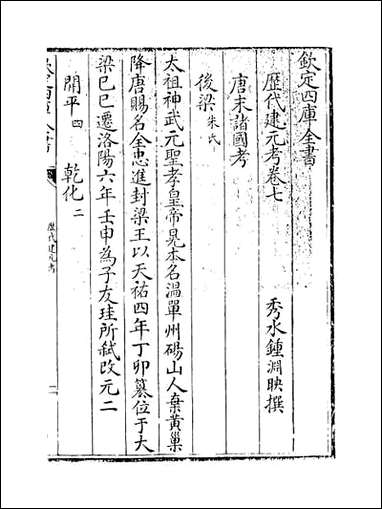 欽定四庫全書
歷代建元考卷七
秀水鍾淵映撰
唐末諸國考
後梁朱氏
太祖神武元聖孝皇帝晃本名溫單州碭山人棄黃巢
降唐賜名全忠進封梁王以天祐四年丁卯篡位于大
梁己巳遷洛陽六年壬申為子友珪所弑改元二
開平四 乾化二
歷代建元考